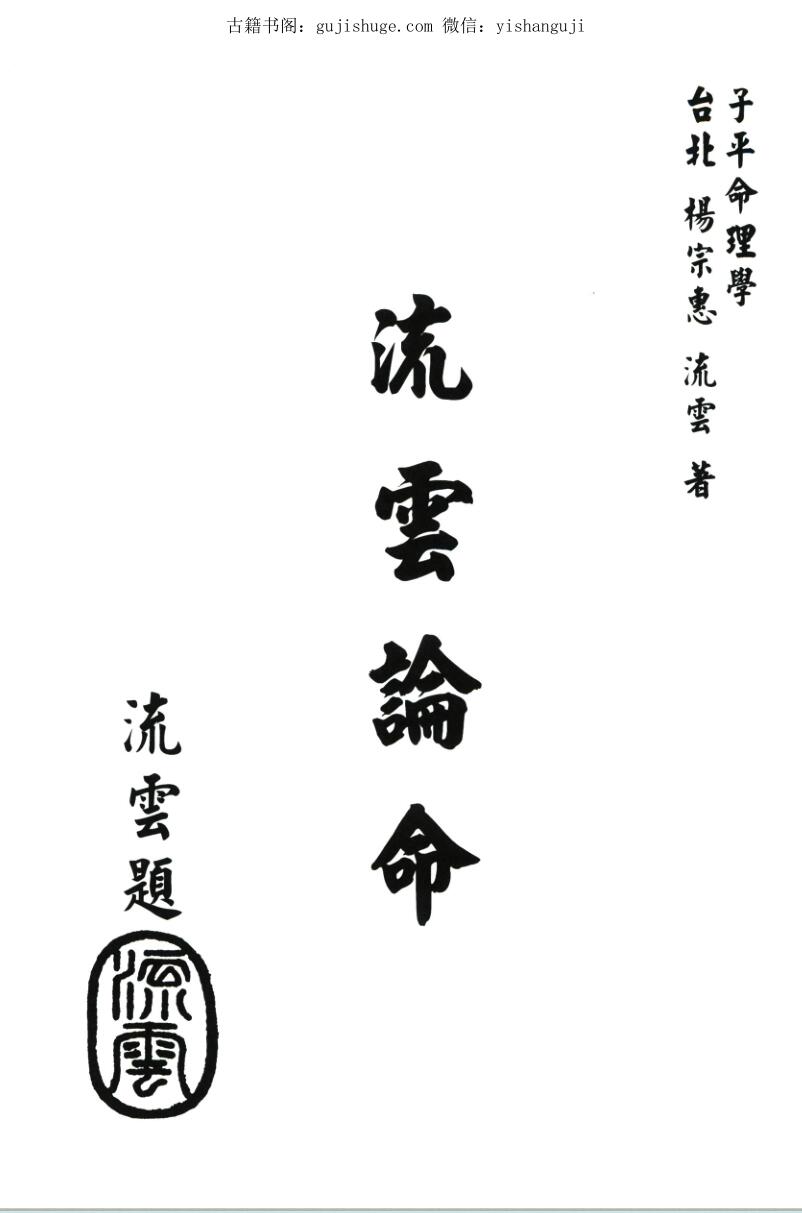 古籍书阁: gujishuge.com 微信: yishanguji
子平命理學
台北 楊宗惠 流雲 著
流雲論命
流雲題
流雲